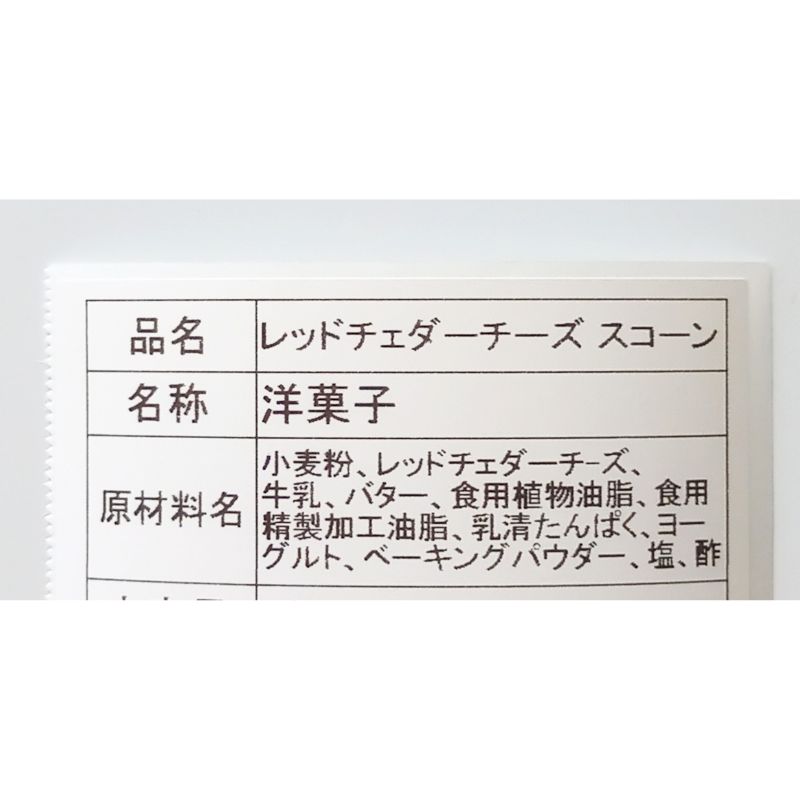 品名 レッドチェダーチーズ スコーン
名称 洋菓子
原材料名 小麦粉、レッドチェダーチーズ、
牛乳、バター、食用植物油脂、食用
精製加工油脂、乳清たんぱく、ヨー
グルト、ベーキングパウダー、塩、酢